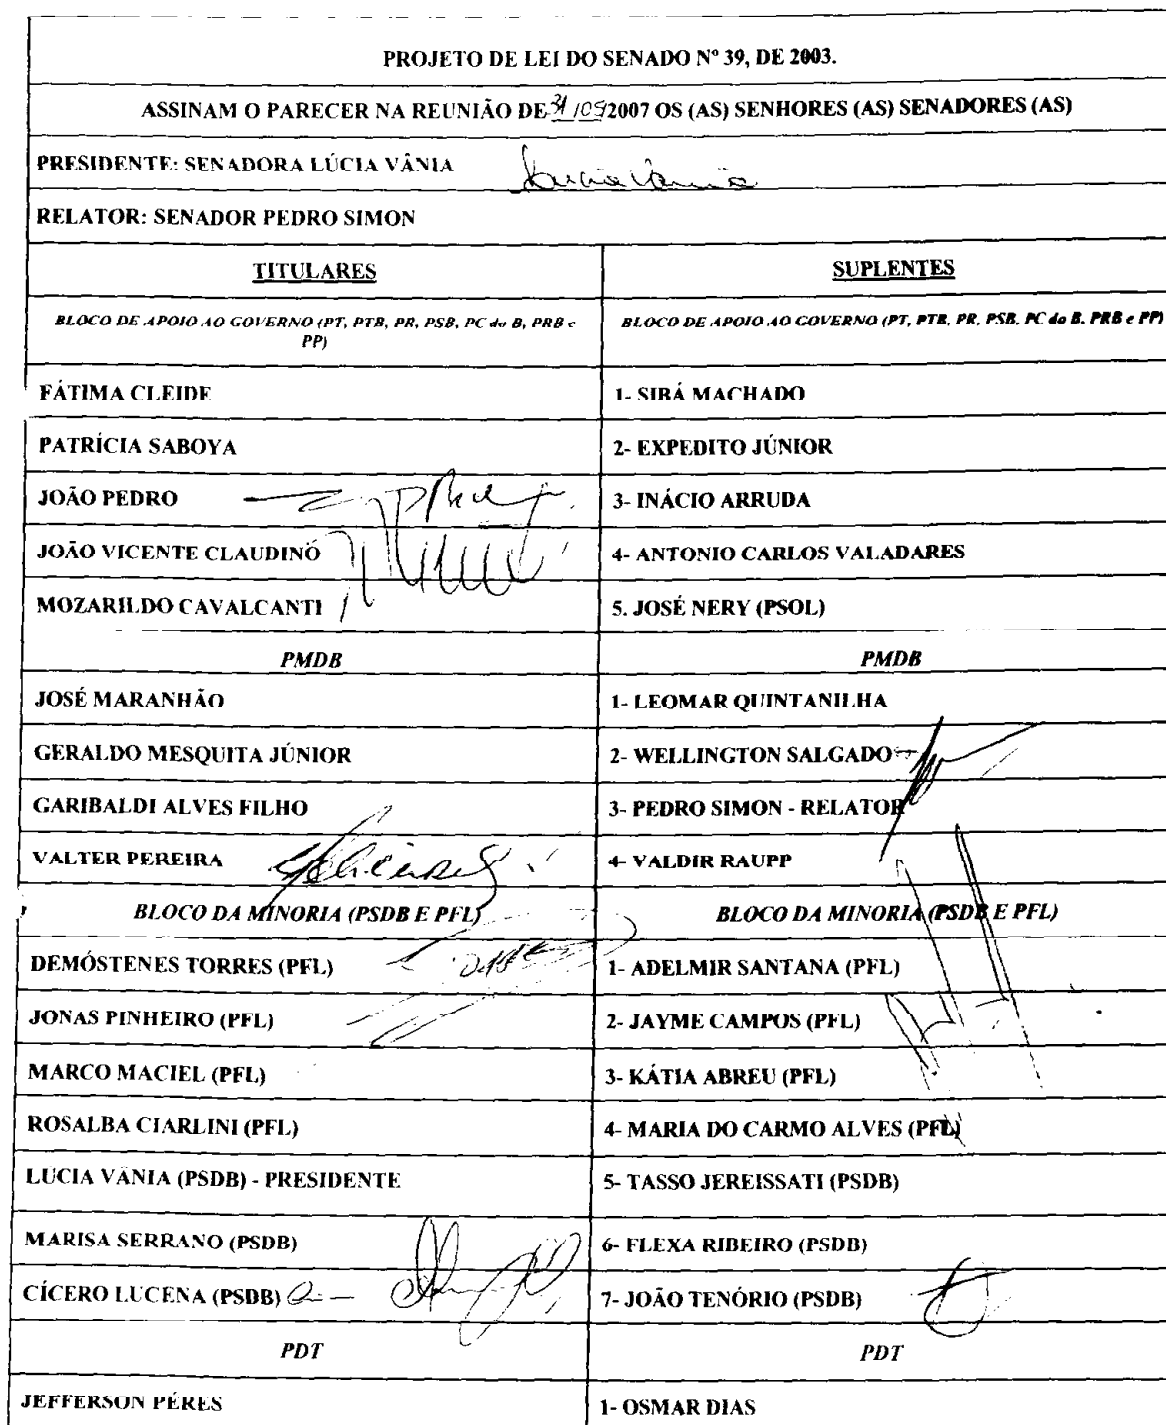 PROJETO DE LEI DO SENADO Nº 39, DE 2003.
ASSINAM O PARECER NA REUNIÃO DE 2007 OS (AS) SENHORES (AS) SENADORES (AS)
PRESIDENTE: SENADORA LÚCIA VÂNIA Lucia Vania
RELATOR: SENADOR PEDRO SIMON
TITULARES SUPLENTES
BLOCO DE APOIO AO GOVERNO (PT, PTB, PR, PSB, PC do B, PRB e
PP)
BLOCO DE APOIO AO GOVERNO (PT, PTB, PR, PSB, PC do B, PRB e PP)
FÁTIMA CLEIDE 1- SIBÁ MACHADO
PATRÍCIA SABOYA 2- EXPEDITO JÚNIOR
JOÃO PEDRO 3- INÁCIO ARRUDA
JOÃO VICENTE CLAUDINO 4- ANTONIO CARLOS VALADARES
MOZARILDO CAVALCANTI 5. JOSÉ NERY (PSOL)
PMDB PMDB
JOSÉ MARANHÃO 1- LEOMAR QUINTANILHA
GERALDO MESQUITA JÚNIOR 2- WELLINGTON SALGADO
GARIBALDI ALVES FILHO 3- PEDRO SIMON - RELATOR
VALTER PEREIRA 4- VALDIR RAUPP
BLOCO DA MINORIA (PSDB E PFL) BLOCO DA MINORIA (PSDB E PFL)
DEMÓSTENES TORRES (PFL) 1- ADELMIR SANTANA (PFL)
JONAS PINHEIRO (PFL) 2- JAYME CAMPOS (PFL)
MARCO MACIEL (PFL) 3- KÁTIA ABREU (PFL)
ROSALBA CIARLINI (PFL) 4- MARIA DO CARMO ALVES (PFL)
LÚCIA VÂNIA (PSDB) - PRESIDENTE 5- TASSO JEREISSATI (PSDB)
MARISA SERRANO (PSDB) 6- FLEXA RIBEIRO (PSDB)
CÍCERO LUCENA (PSDB) 7- JOÃO TENÓRIO (PSDB)
PDT PDT
JEFFERSON PÉRES 1- OSMAR DIAS